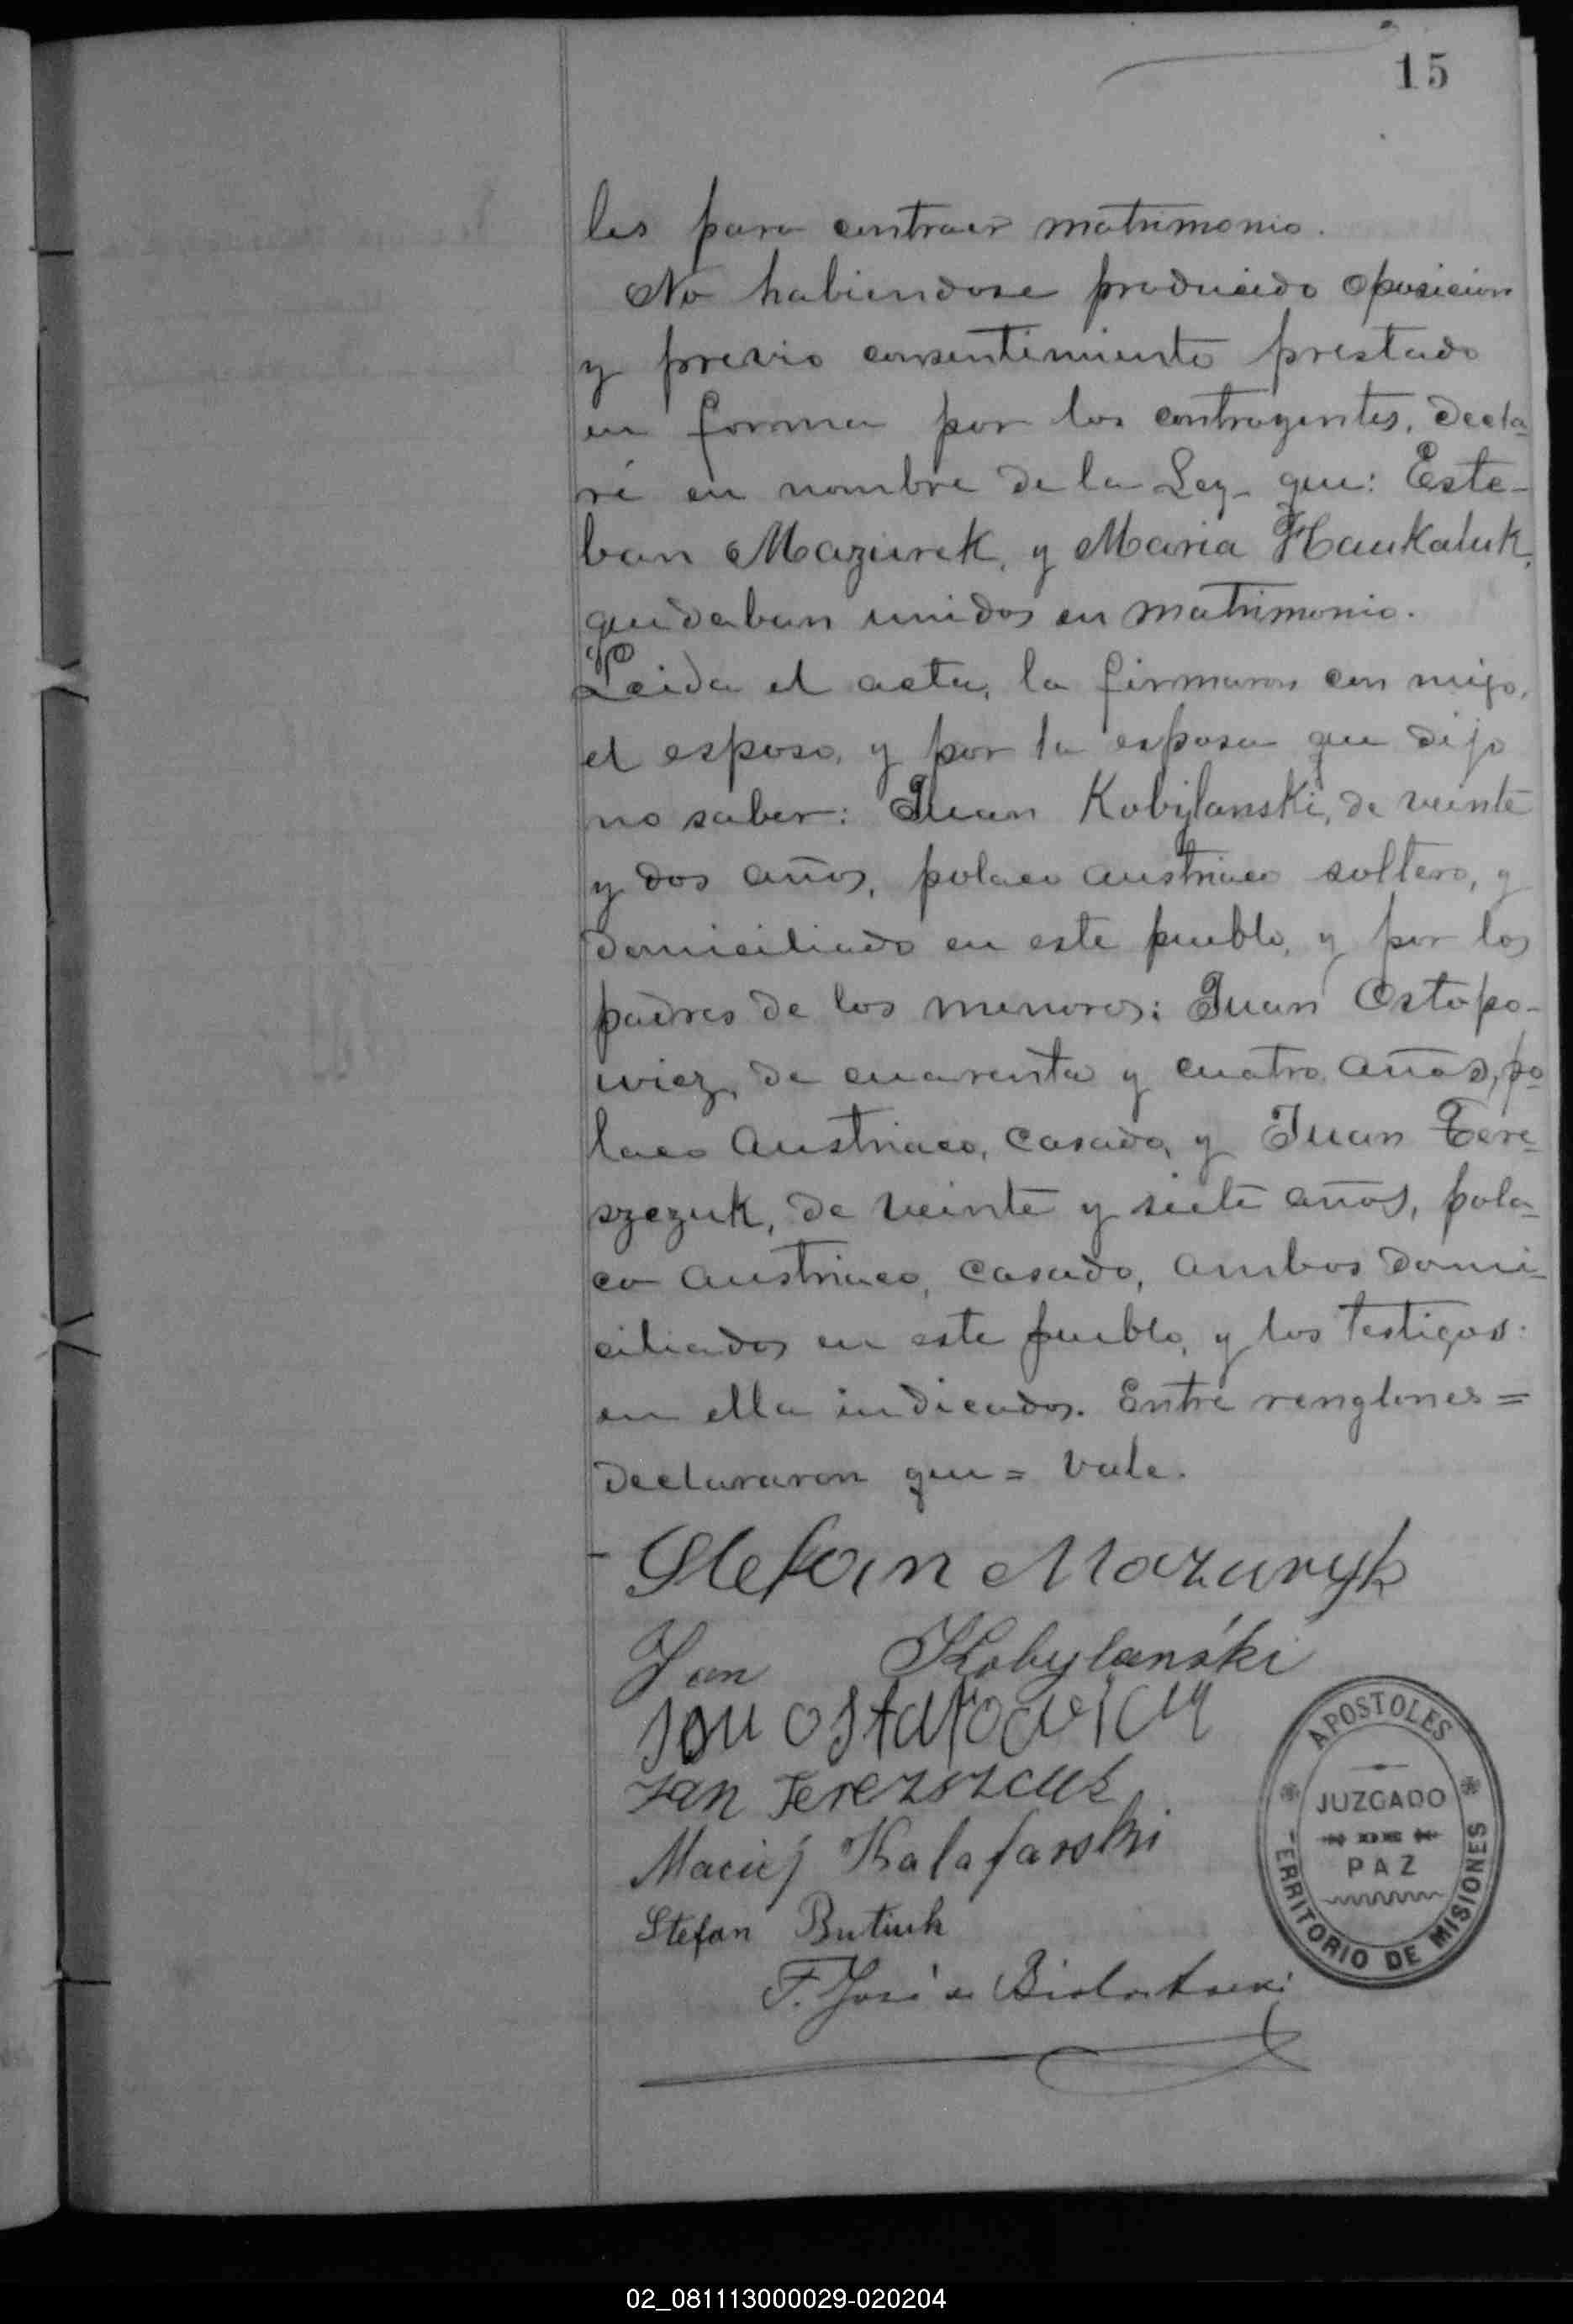 15
les para contraer matrimonio.
No habiendose producido oposicion
y previo consentimiento prestado
en forma por los contrayentes, decla-
ré en nombre de la Ley que: Este-
ban Mazurek, y Maria Haukaluk,
quedaban unidos en matrimonio.
Leida el acta, la firmaron con migo,
el esposo, y por la esposa que dijo
no saber: Juan Kobylanski, de veinte
y dos años, polaco austriaco soltero, y
domiciliado en este pueblo, y por los
padres de los menores: Juan Ostapo-
wicz, de cuarenta y cuatro años, po-
laco austriaco, casado, y Juan Tere-
szczuk, de veinte y siete años, pola-
co austriaco, casado, ambos domi-
ciliados en este pueblo, y los testigos
en ella indicados. Entre renglones =
declararon que = vale.
Stefan Mazuryk
Jan Kobylański
Jan Terezszcuk
Maciej Kalafarski
Stefan Butiuk
F. José
APOSTOLES
JUZGADO
DE
PAZ
TERRITORIO DE MISIONES
02_081113000029-020204